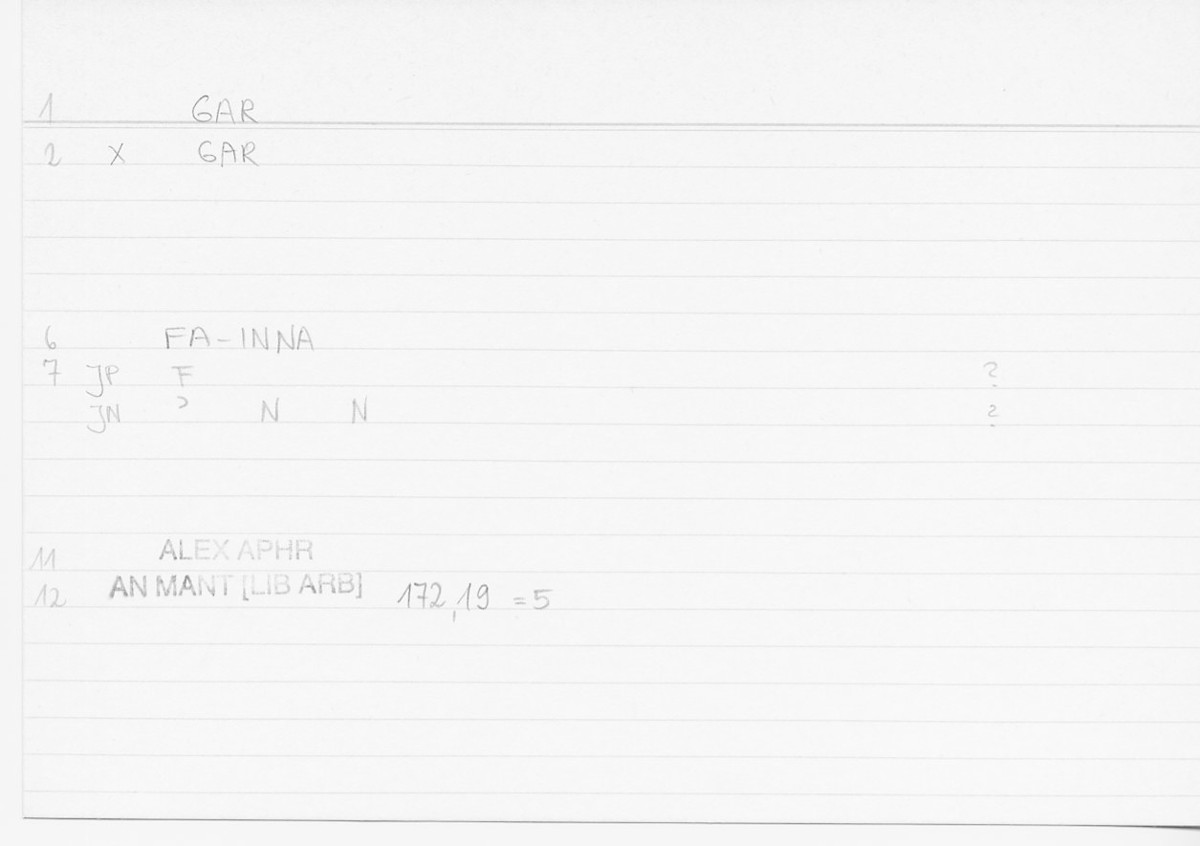 1 GAR
2 X GAR
6 FA-INNA
7 JP F ?
JN ʾ N N ?
11 ALEX APHR
12 AN MANT [LIB ARB] 172,19 =5